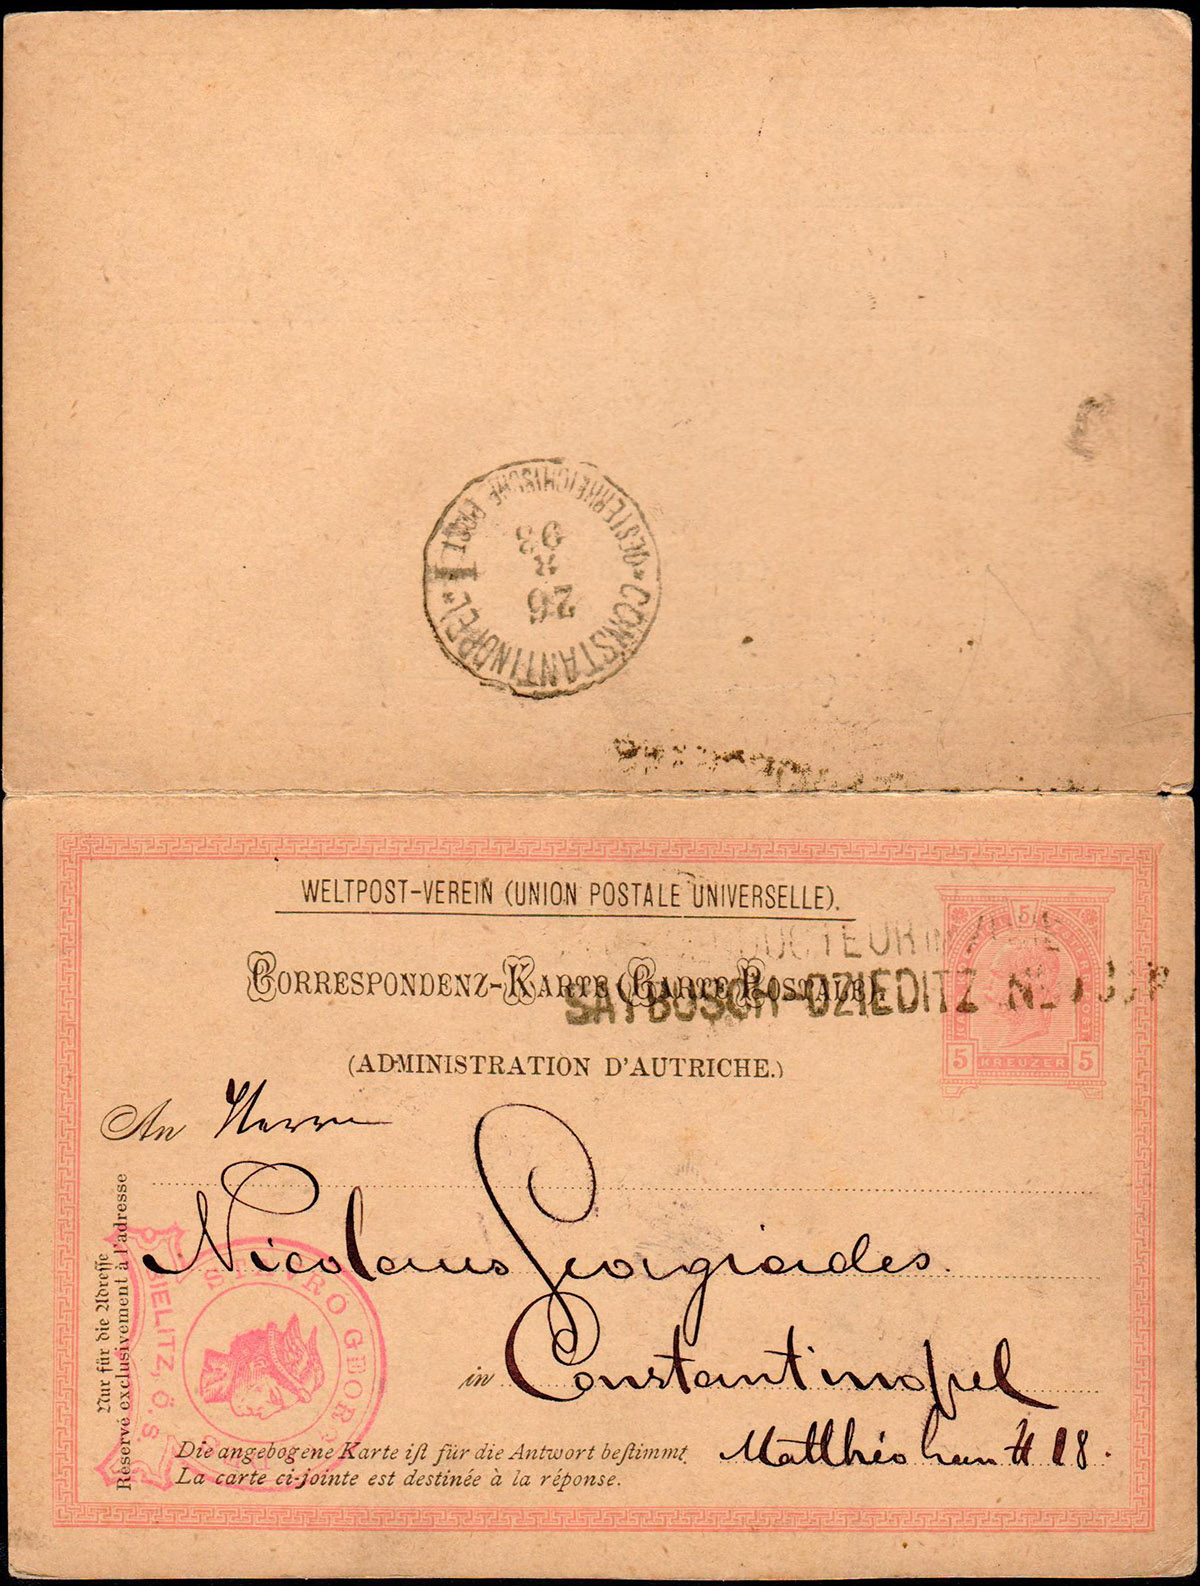 * CONSTANTINOPEL * I
OESTERREICHISCHE POST
26
93
WELTPOST-VEREIN (UNION POSTALE UNIVERSELLE).
CORRESPONDENZ-KARTE (CARTE POSTALE).
SAYBUSCH-DZIEDITZ
(ADMINISTRATION D'AUTRICHE.)
5
5 KREUZER 5
An Herrn
Nicolaus Georgiades.
in Constantinopel
Han # 18.
Nur für die Adresse
Réservé exclusivement à l'adresse
STAVRO GEOR
BIELITZ, Ö. S.
Die angebogene Karte ist für die Antwort bestimmt.
La carte ci-jointe est destinée à la réponse.